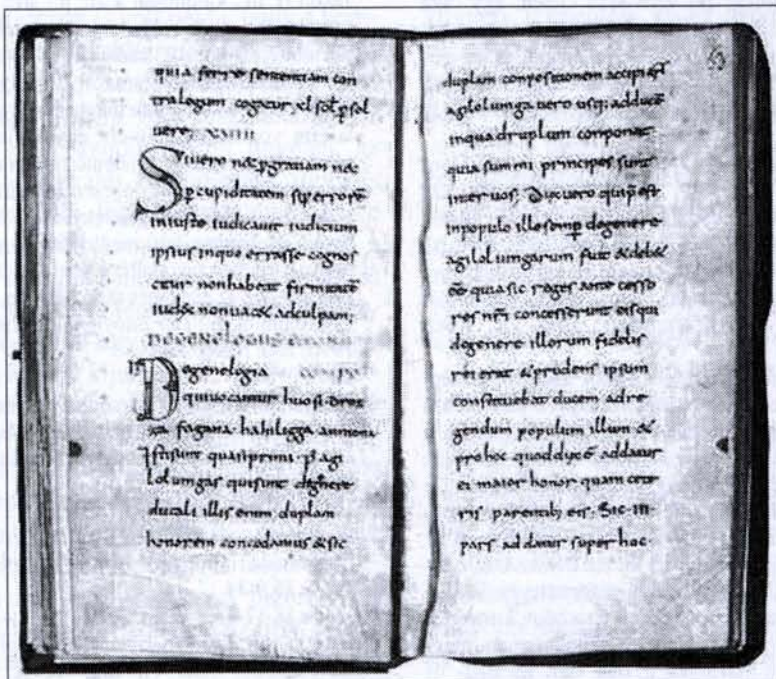 quia ferre sententiam con
tra legem cogatur xl sol p sol
vere; XVIIII
Si vero nec p gratiam nec
p cupiditatem s; p errorē
iniuste iudicavit iudicium
ipsius in quo errasse cognos
citur non habeat firmitatē
iudex non vacet ad culpam;
DE GENELOGIIS
De genelogia
qui vocantur huosi drez
za fagana hahiligga anniona
isti sunt quasi primi p agi
lolungas qui sunt de genere
ducali illis enim duplam
honorem concedamus & sic
63
duplam conpositionem accipi
agilolunga vero usq; ad ducē
in quadruplum conponat
quia summi principes sunt
inter vos; Dux vero qui p est
in populo illo semp de genere
agilolungarum fuit & deb&
eē quia sic reges ante cesso
res nr̄i concesserunt eis qui
de genere illorum fidelis
rei erat & prudens ipsum
constituebat ducem ad re
gendum populum illum &
pro hoc quod dux ē addatur
ei maior honor quam cete
ris parentib; eis; Sic III
pars addatur super hoc